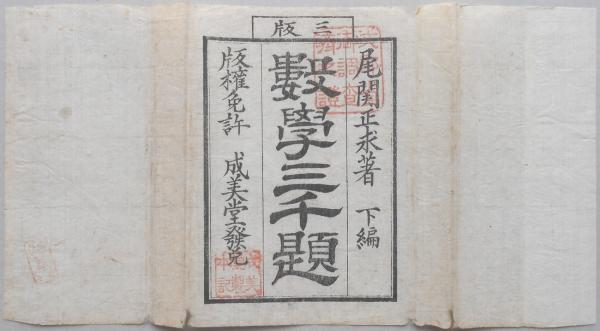 三版
尾関正求著　下編
數學三千題
版權免許　成美堂發兌